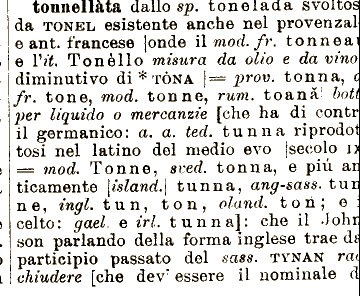 tonnellàta dallo sp. tonelada svoltos
da TONEL esistente anche nel provenzal
e ant. francese [onde il mod. fr. tonneau
e l'it. Tonèllo misura da olio e da vino
diminutivo di * TÒNA [= prov. tonna,
fr. tone, mod. tonne, rum. toană bott
per liquido o mercanzie [che ha di contr
il germanico: a. a. ted. tunna riprodot
tosi nel latino del medio evo [secolo IX
= mod. Tonne, sved. tonna, e più an
ticamente [island.] tunna, ang-sass. tun
ne, ingl. tun, ton, oland. ton; e
celto: gael. e irl. tunna]: che il John
son parlando della forma inglese trae da
participio passato del sass. TYNAN rac
chiudere [che dev' essere il nominale d